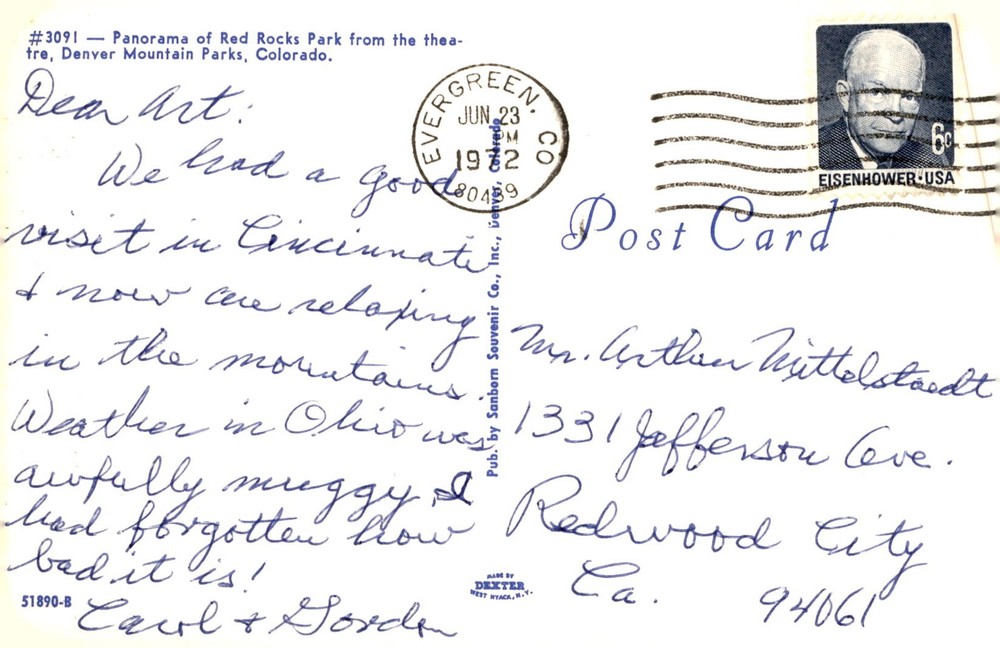 #3091 — Panorama of Red Rocks Park from the thea-
tre, Denver Mountain Parks, Colorado.
Dear Art:
We had a good
visit in Cincinnati
& now are relaxing
in the mountains.
Weather in Ohio was
awfully muggy, I
had forgotten how
bad it is!
Carol & Gordon
51890-B
EVERGREEN, CO
JUN 23
PM
1972
80439
Pub. by Sanborn Souvenir Co., Inc., Denver, Colorado
MADE BY
DEXTER
WEST NYACK, N.Y.
6c
EISENHOWER·USA
Post Card
Mr. Arthur Mittelstaedt
1331 Jefferson Ave.
Redwood City
Ca. 94061